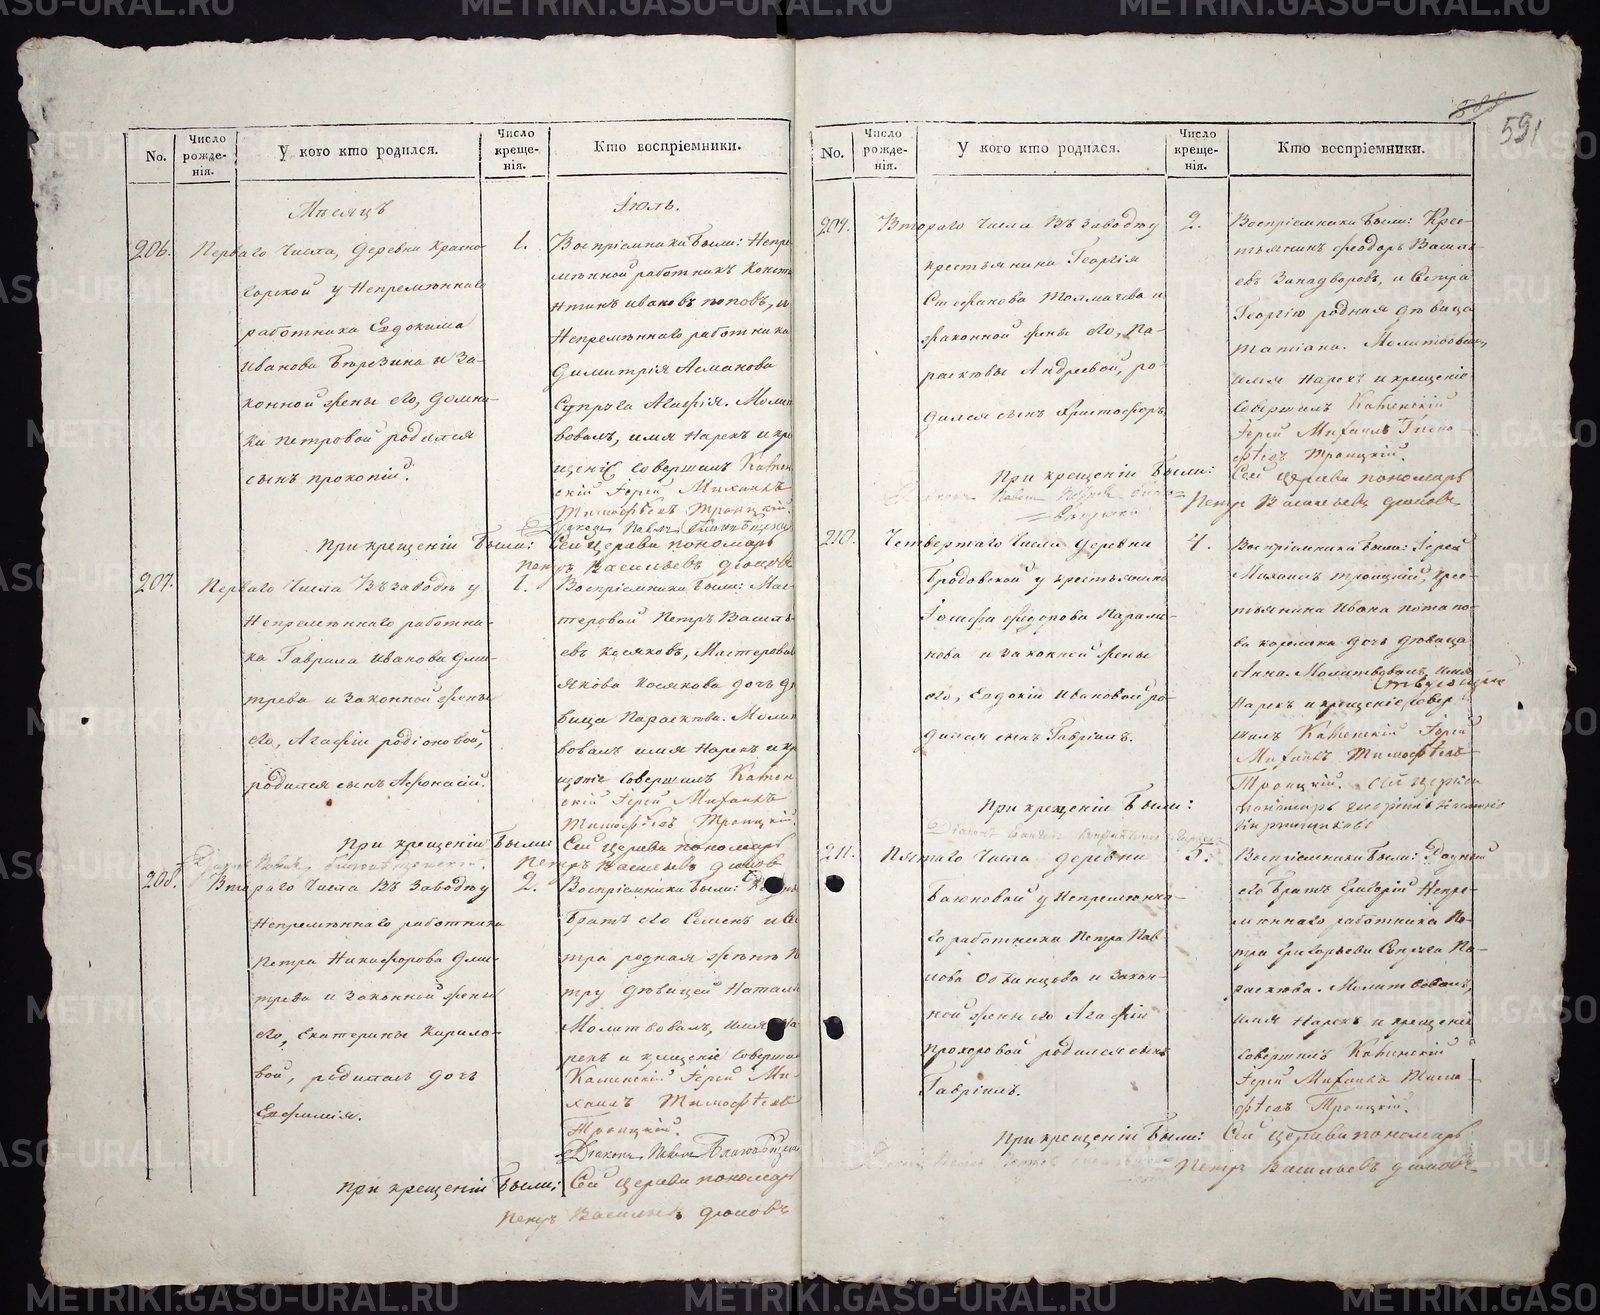 588
591
No.
Число рожде-нія.
У кого кто родился.
Число креще-нія.
Кто воспріемники.
Мѣсяцъ
Іюль.
206.
Перваго Числа, деревни Красно-
горской у Непремѣннаго
работника Евдокима
Иванова Березина и за-
конной жены его, Домни-
ки Петровой родился
сынъ Прокопій.
1.
Воспріемники были: Непре
мѣнной работникъ Конст
нтинъ Ивановъ Поповъ, и
Непремѣннаго работника
Димитрія Асманова
Супруга Агафія. Молит
вовалъ, имя нарекъ и кре
щеніе совершилъ Камен
скій Іерей Михаилъ
Тимофѣевъ Троицкій.
Діаконъ Павелъ
При крещеніи были: Сей церкви пономарь
Петръ Васильевъ
207.
Перваго Числа Въ заводѣ у
Непремѣннаго работни-
ка Гаврила Иванова Дми-
трева и законной жены
его, Агафіи Родіоновой,
родился сынъ Афонасій.
1.
Воспріемники были: Мас-
теровой Петръ Василь-
евъ Косяковъ, Мастероваго
Якова Косякова дочь дѣ
вица Параскева. Молит
вовалъ имя нарекъ и кр
щеніе совершилъ Камен
скій Іерей Михаилъ
Тимофѣевъ Троицкій.
При крещеніи были: Сей церкви пономарь
Петръ Васильевъ
208.
Втораго Числа Въ заводѣ у
Непремѣннаго работника
Петра Никифорова Дми-
трева и законной жены
его, Екатерины Кирило-
вой, родилась дочь
Евфимія.
2.
Воспріемники были:
Братъ его Семенъ и Се
тра родная
тру дѣвицей Натали
Молитвовалъ, имя на
рекъ и крещеніе соверши
Каменскій Іерей Ми-
хаилъ Тимофѣевъ
Троицкій.
Діаконъ Павелъ
При крещеніи были: Сей церкви пономарь
Петръ Васильевъ
No.
Число рожде-нія.
У кого кто родился.
Число креще-нія.
Кто воспріемники.
209.
Втораго Числа Въ заводѣ у
крестьянина Георгія
Стефанова Толмачева и
законной жены его, Па-
раскевы Андреевой, ро-
дился сынъ Христофоръ
2.
Воспріемники были: Крес-
тьянинъ Феодоръ Василь-
евъ Западворовъ, и Сестра
Георгію родная дѣвица
Татіана. Молитвовалъ,
имя нарекъ и крещеніе
совершилъ Каменскій
Іерей Михаилъ Тимо-
фѣевъ Троицкій.
При крещеніи были: Сей церкви пономарь
Петръ Васильевъ
210.
Четвертаго Числа деревни
Бродовской у крестьянина
Іосифа Фидорова Парами-
нова и законной жены
его, Евдокіи Ивановой ро-
дился сынъ Гавріилъ.
4.
Воспріемники были: Іерей
Михаилъ Троицкій, Крес-
тьянина Ивана Потапо-
ва дочь дѣвица
Анна. Молитвовалъ, имя
нарекъ и крещеніе совер-
шилъ Каменскій Іерей
Михаилъ Тимофѣевъ
Троицкій. Сей церкви
пономарь
При крещеніи были:
211.
Пятаго Числа деревни
Баюновой у Непремѣнна-
го работника Петра Пав-
лова Обвинцова и закон-
ной жены его Агафіи
Прохоровой родился сынъ
Гавріилъ.
5.
Воспріемники были: Родный
его братъ Григорій Непре-
мѣннаго работника Пе-
тра Григорьева Супруга Па-
раскева. Молитвовалъ,
имя нарекъ и крещеніе
совершилъ Каменскій
Іерей Михаилъ Тимо-
фѣевъ Троицкій.
При крещеніи были: Сей церкви пономарь
Петръ Васильевъ
METRIKI.GASO-URAL.RU